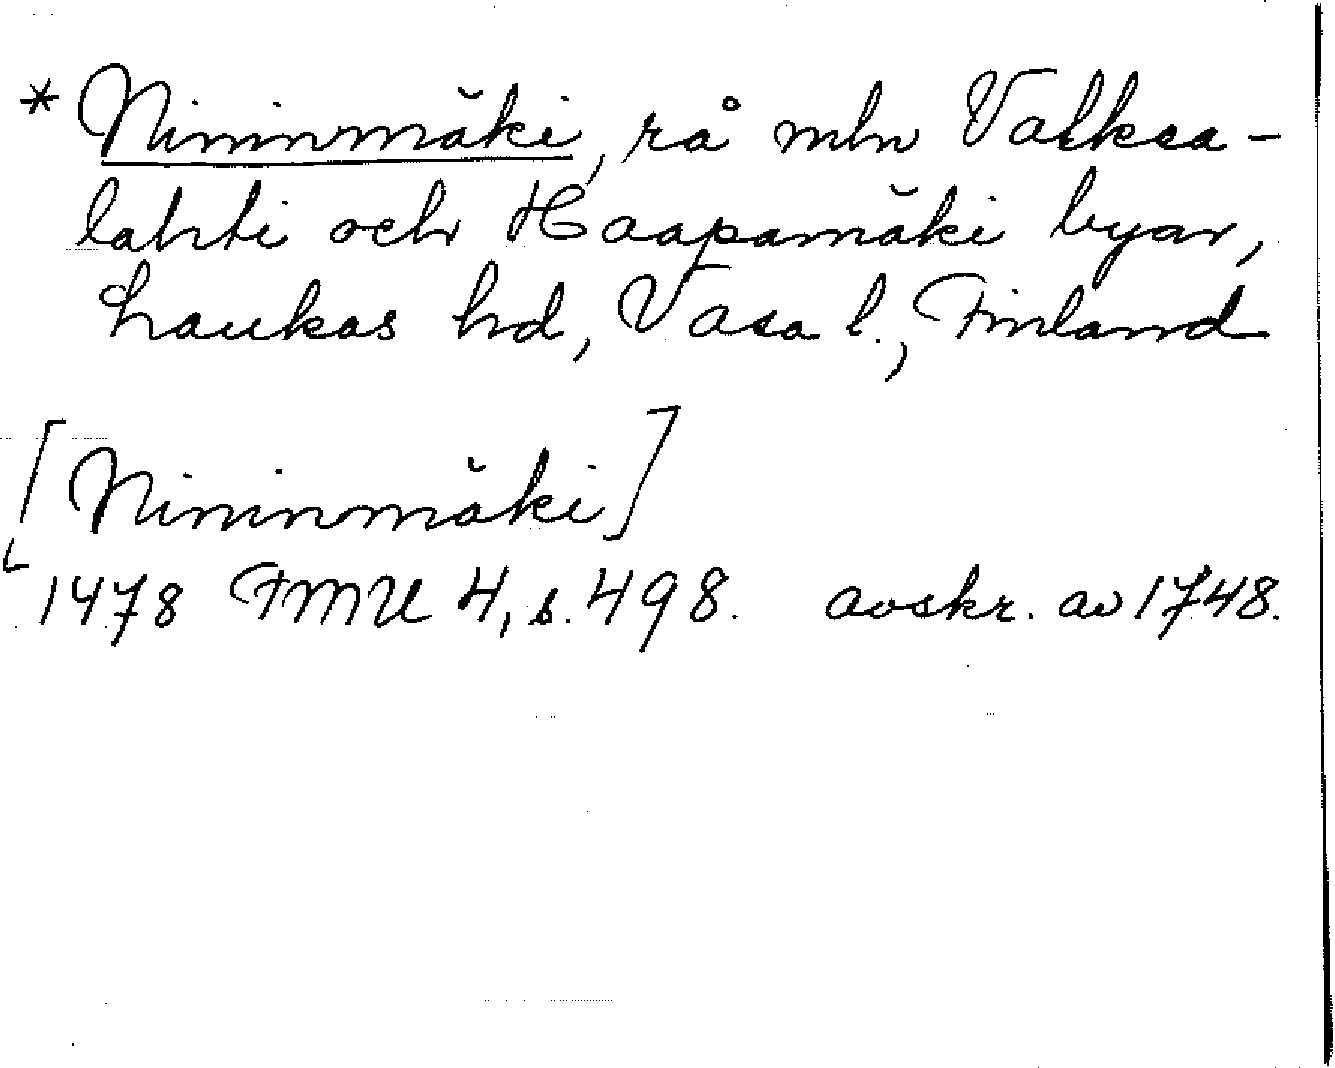 * Nininmäki, rå mln Valksa-
lahti och Haapamäki byar,
Laukas hd, Vasa l., Finland
[Nininmäki]
1478 FMU 4, s. 498. avskr. av 1748.